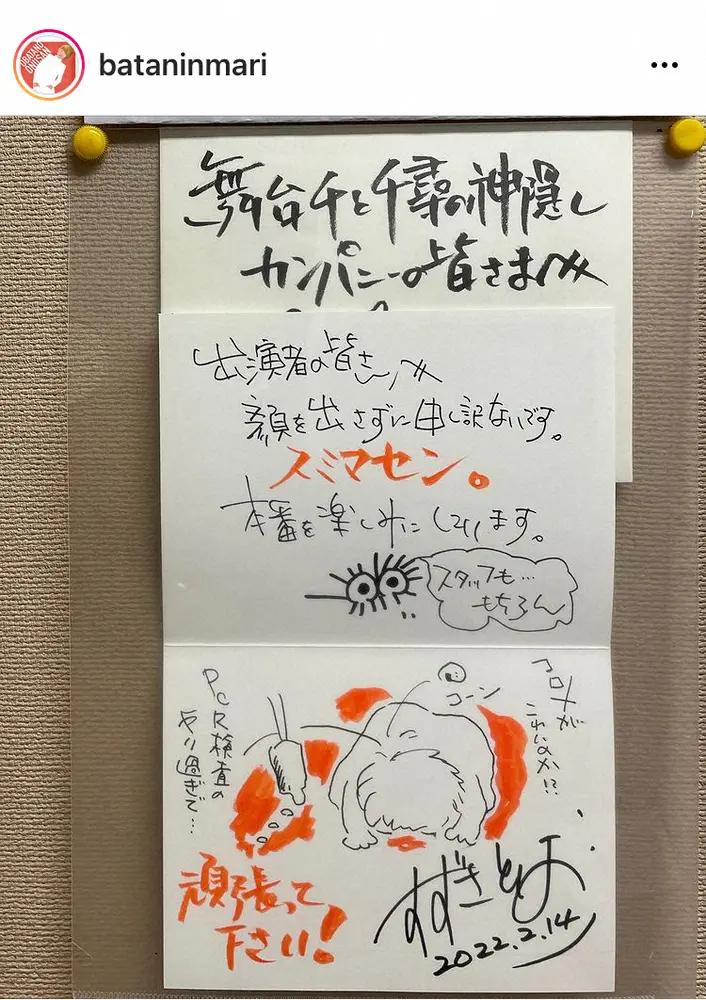 bataninmari
舞台千と千尋の神隠し
カンパニーの皆さまへ
出演者の皆さんへ
顔を出さずに申し訳ないです。
スミマセン。
本番を楽しみにしています。
スタッフも…
もちろん
コーン
コロナが
これいのか!?
PCR検査の
やり過ぎで…
頑張って
下さい!
すずきとしお
2022.2.14